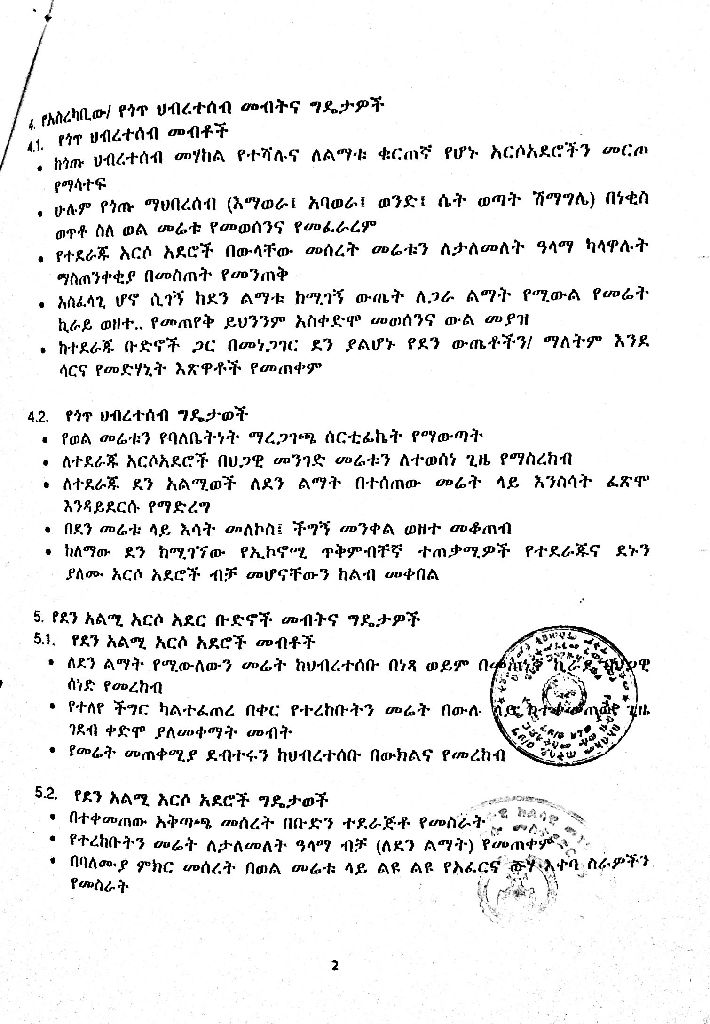 4. የአስረካቢው/ የጎጥ ህብረተሰብ መብትና ግዴታዎች
4.1. የጎጥ ህብረተሰብ መብቶች
• ከጎጡ ህብረተሰብ መሃከል የተሻሉና ለልማቱ ቁርጠኛ የሆኑ አርሶአደሮችን መርጦ
የማሳተፍ
• ሁሉም የጎጡ ማህበረሰብ (እማወራ፤ አባወራ፤ ወንድ፤ ሴት ወጣት ሽማግሌ) በነቂስ
ወጥቶ ስለ ወል መሬቱ የመወሰንና የመፈራረም
• የተደራጁ አርሶ አደሮች በውላቸው መሰረት መሬቱን ለታለመለት ዓላማ ካላዋሉት
ማስጠንቀቂያ በመስጠት የመንጠቅ
• አስፈላጊ ሆኖ ሲገኝ ከደን ልማቱ ከሚገኝ ውጤት ለጋራ ልማት የሚውል የመሬት
ኪራይ ወዘተ.. የመጠየቅ ይህንንም አስቀድሞ መወሰንና ውል መያዝ
• ከተደራጁ ቡድኖች ጋር በመነጋገር ደን ያልሆኑ የደን ውጤቶችን/ ማለትም እንደ
ሳርና የመድሃኒት እጽዋቶች የመጠቀም
4.2. የጎጥ ህብረተሰብ ግዴታወች
• የወል መሬቱን የባለቤትነት ማረጋገጫ ሰርቲፊኬት የማውጣት
• ለተደራጁ አርሶአደሮች በህጋዊ መንገድ መሬቱን ለተወሰነ ጊዜ የማስረከብ
• ለተደራጁ ደን አልሚወች ለደን ልማት በተሰጠው መሬት ላይ እንስሳት ፈጽሞ
እንዳይደርሱ የማድረግ
• በደን መሬቱ ላይ እሳት መለኮስ፤ ችግኝ መንቀል ወዘተ መቆጠብ
• ከለማው ደን ከሚገኘው የኢኮኖሚ ጥቅምብቸኛ ተጠቃሚዎች የተደራጁና ደኑን
ያለሙ አርሶ አደሮች ብቻ መሆናቸውን ከልብ መቀበል
5. የደን አልሚ አርሶ አደር ቡድኖች መብትና ግዴታዎች
5.1. የደን አልሚ አርሶ አደሮች መብቶች
• ለደን ልማት የሚውለውን መሬት ከህብረተሰቡ በነጻ ወይም በመጠነኛ ኪራይ በህጋዊ
ሰነድ የመረከብ
• የተለየ ችግር ካልተፈጠረ በቀር የተረከቡትን መሬት በውሉ ላይ ከተቀመጠው ጊዜ
ገደብ ቀድሞ ያለመቀማት መብት
• የመሬት መጠቀሚያ ደብተሩን ከህብረተሰቡ በውክልና የመረከብ
5.2. የደን አልሚ አርሶ አደሮች ግዴታወች
• በተቀመጠው አቅጣጫ መሰረት በቡድን ተደራጅቶ የመስራት
• የተረከቡትን መሬት ለታለመለት ዓላማ ብቻ (ለደን ልማት) የመጠቀም
• በባለሙያ ምክር መሰረት በወል መሬቱ ላይ ልዩ ልዩ የአፈርና ውሃ እቀባ ስራዎችን
የመስራት
2